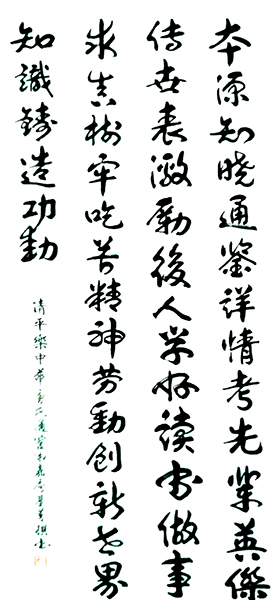 本源知晓通鑒詳情考先輩英傑
传世表激励後人学好读书做事
求真樹牢吃苦精神劳動創新世界
知識鑄造功勳
清平樂中華